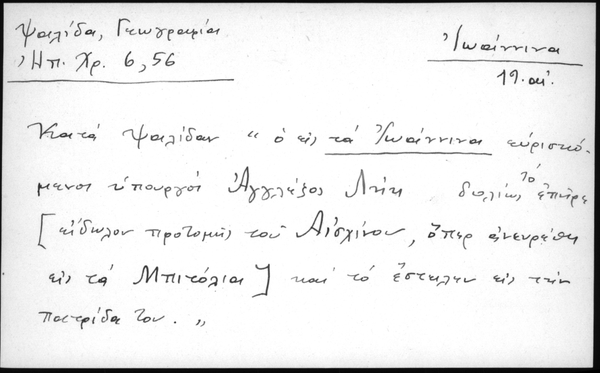 Ψαλίδα, Γεωγραφία
Ἠπ. Χρ. 6, 56
Ἰωάννινα
19. αἰ.
Κατά Ψαλίδαν "ὁ εἰς τά Ἰωάννινα εὑρισκό-
μενος ὑπουργός Ἀγγλέζος Λήκ δολίως τό ἐπῆρε
[εἴδωλον προτομῆς τοῦ Αἰσχίνου, ὅπερ ἀνευρέθη
εἰς τά Μπιτόλια] καί τό ἔστειλεν εἰς τήν
πατρίδα του."